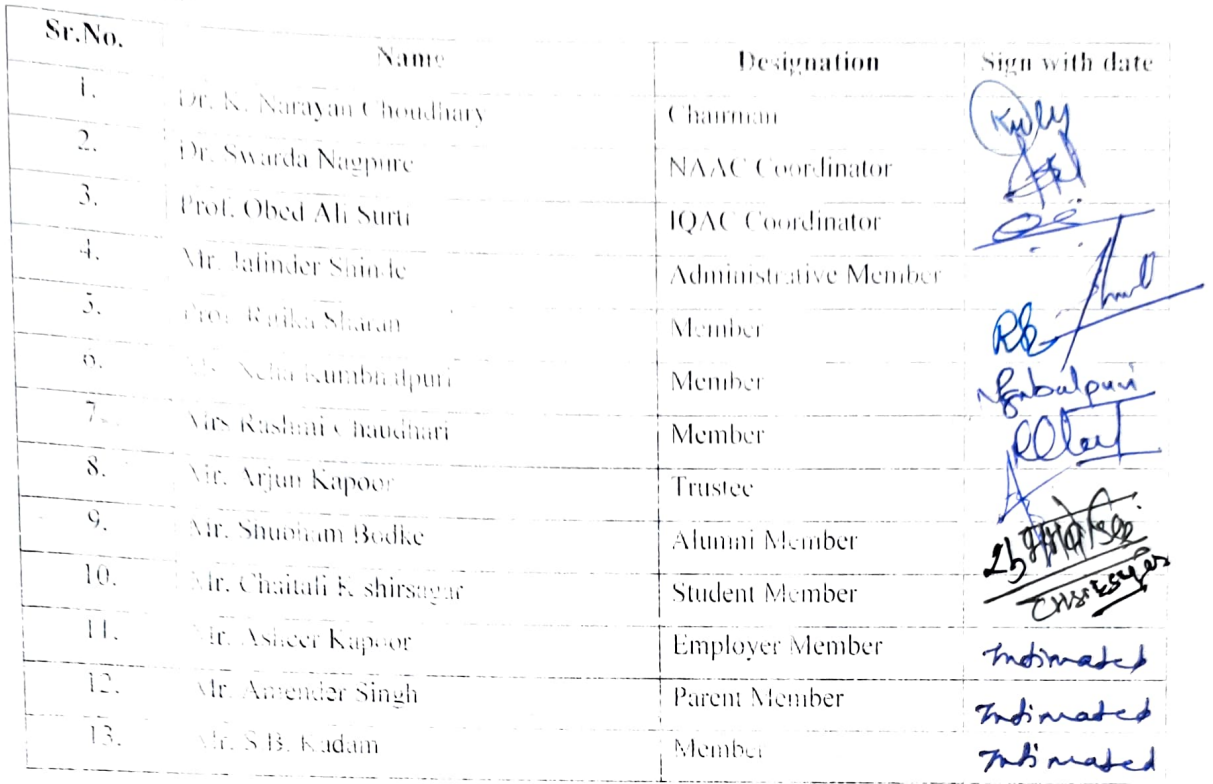 Sr.No. Name Designation Sign with date
1. Dr. K. Narayan Choudhary Chairman
2. Dr. Swarda Nagpure NAAC Coordinator
3. Prof. Obed Ali Surti IQAC Coordinator
4. Mr. Jatinder Shinde Administrative Member
5. Prof. Ritika Sharan Member
6. Neha Member
7. Mrs Rashmi Chaudhari Member
8. Mr. Arjun Kapoor Trustee
9. Mr. Shubham Bodke Alumni Member
10. Mr. Chaitali K shirsagar Student Member
11. Mr. Asheer Kapoor Employer Member Intimated
12. Mr. Amender Singh Parent Member Intimated
13. Mr. S.B. Kadam Member Intimated